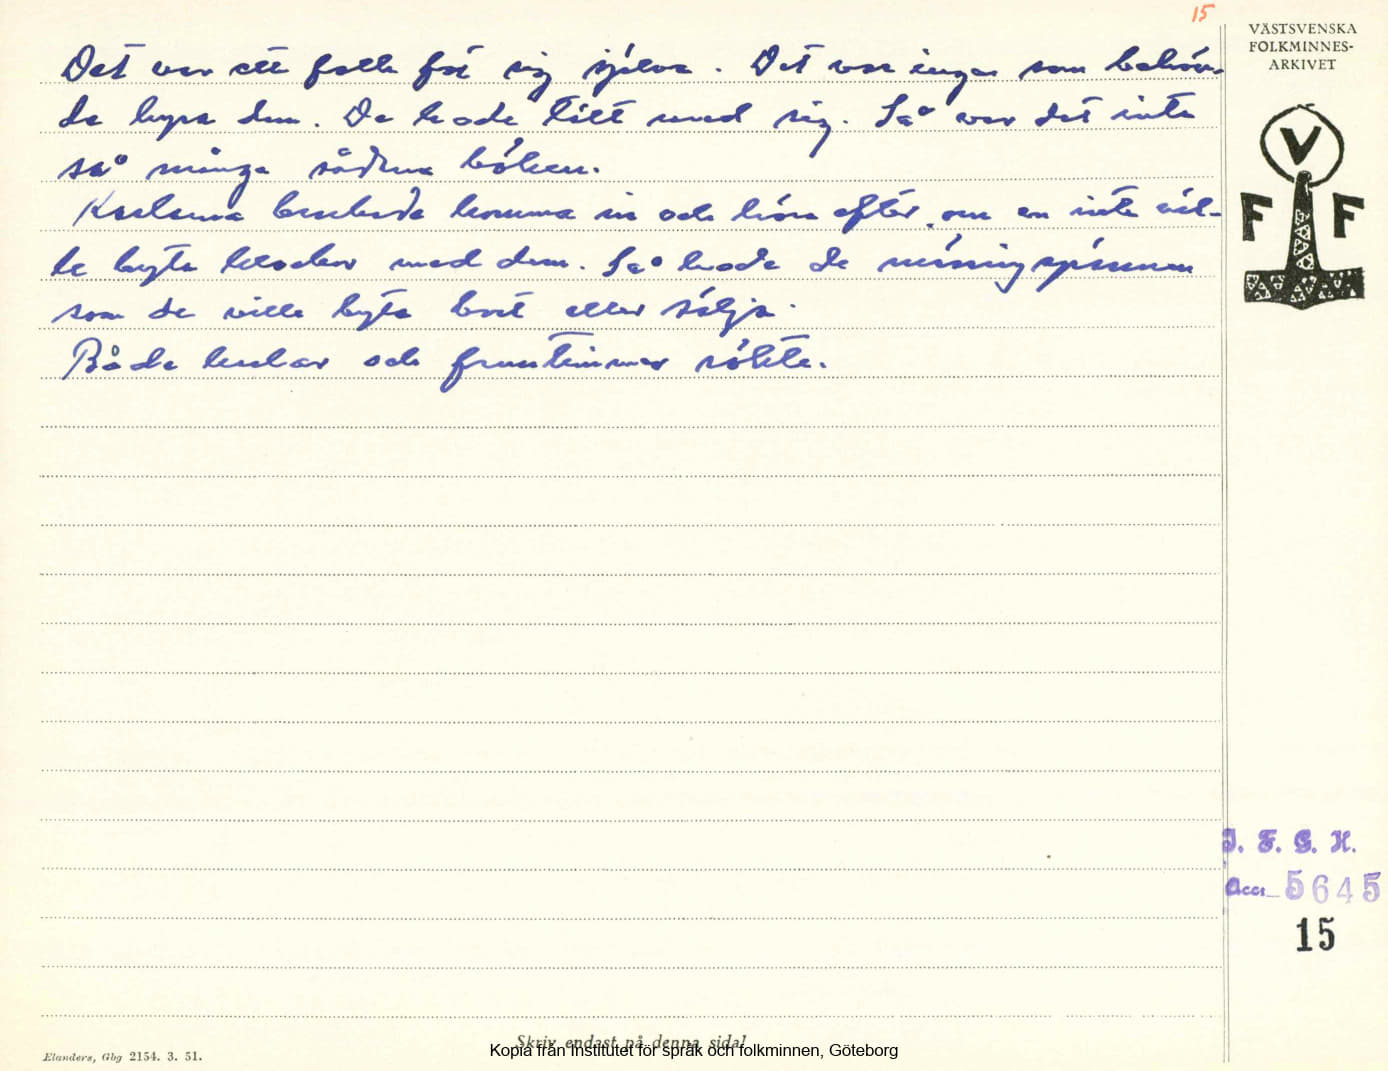 15
VÄSTSVENSKA
FOLKMINNES-
ARKIVET
Det var ett folk för sig själva. Det var ingen som behöv-
de hysa dem. De hade tält med sig. Så var det inte
så många sådana böken.
Karlarna brukade komma in och höra efter, om en inte vil-
le byta klockor med dem. Så hade de mässingspännen
som de ville byta bort eller sälja.
Både karlar och fruntimmer rökte.
V
F F
I. F. G. H.
Acc. 5645
15
Skriv endast på denna sida!
Elanders, Gbg 2154. 3. 51.
Kopia från Institutet för språk och folkminnen, Göteborg